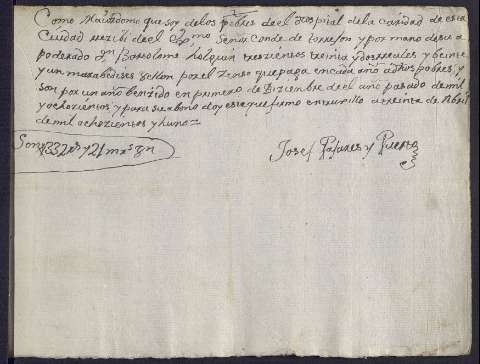 Como Maiordomo que soy de los Pobres de el Hospital de la Caridad de esta
Ciudad rezibi de el Ex.mo Señor Conde de torrejon y por mano de su a
poderado D.n Bartolome Holguin treszientos treinta y dos reales y beinte
y un marabedises bellon por el Zenso que paga en cada año a dhos pobres, y
son por un año benzido en primero de Dizienbre de el año pasado de mil
y ochozientos y para su abono doy este que firmo en trujillo a treinta de Abril
de mil ochozientos y huno=
Son 332 r.s y 21 mr.s Vn
Josef Pajares y Puerto